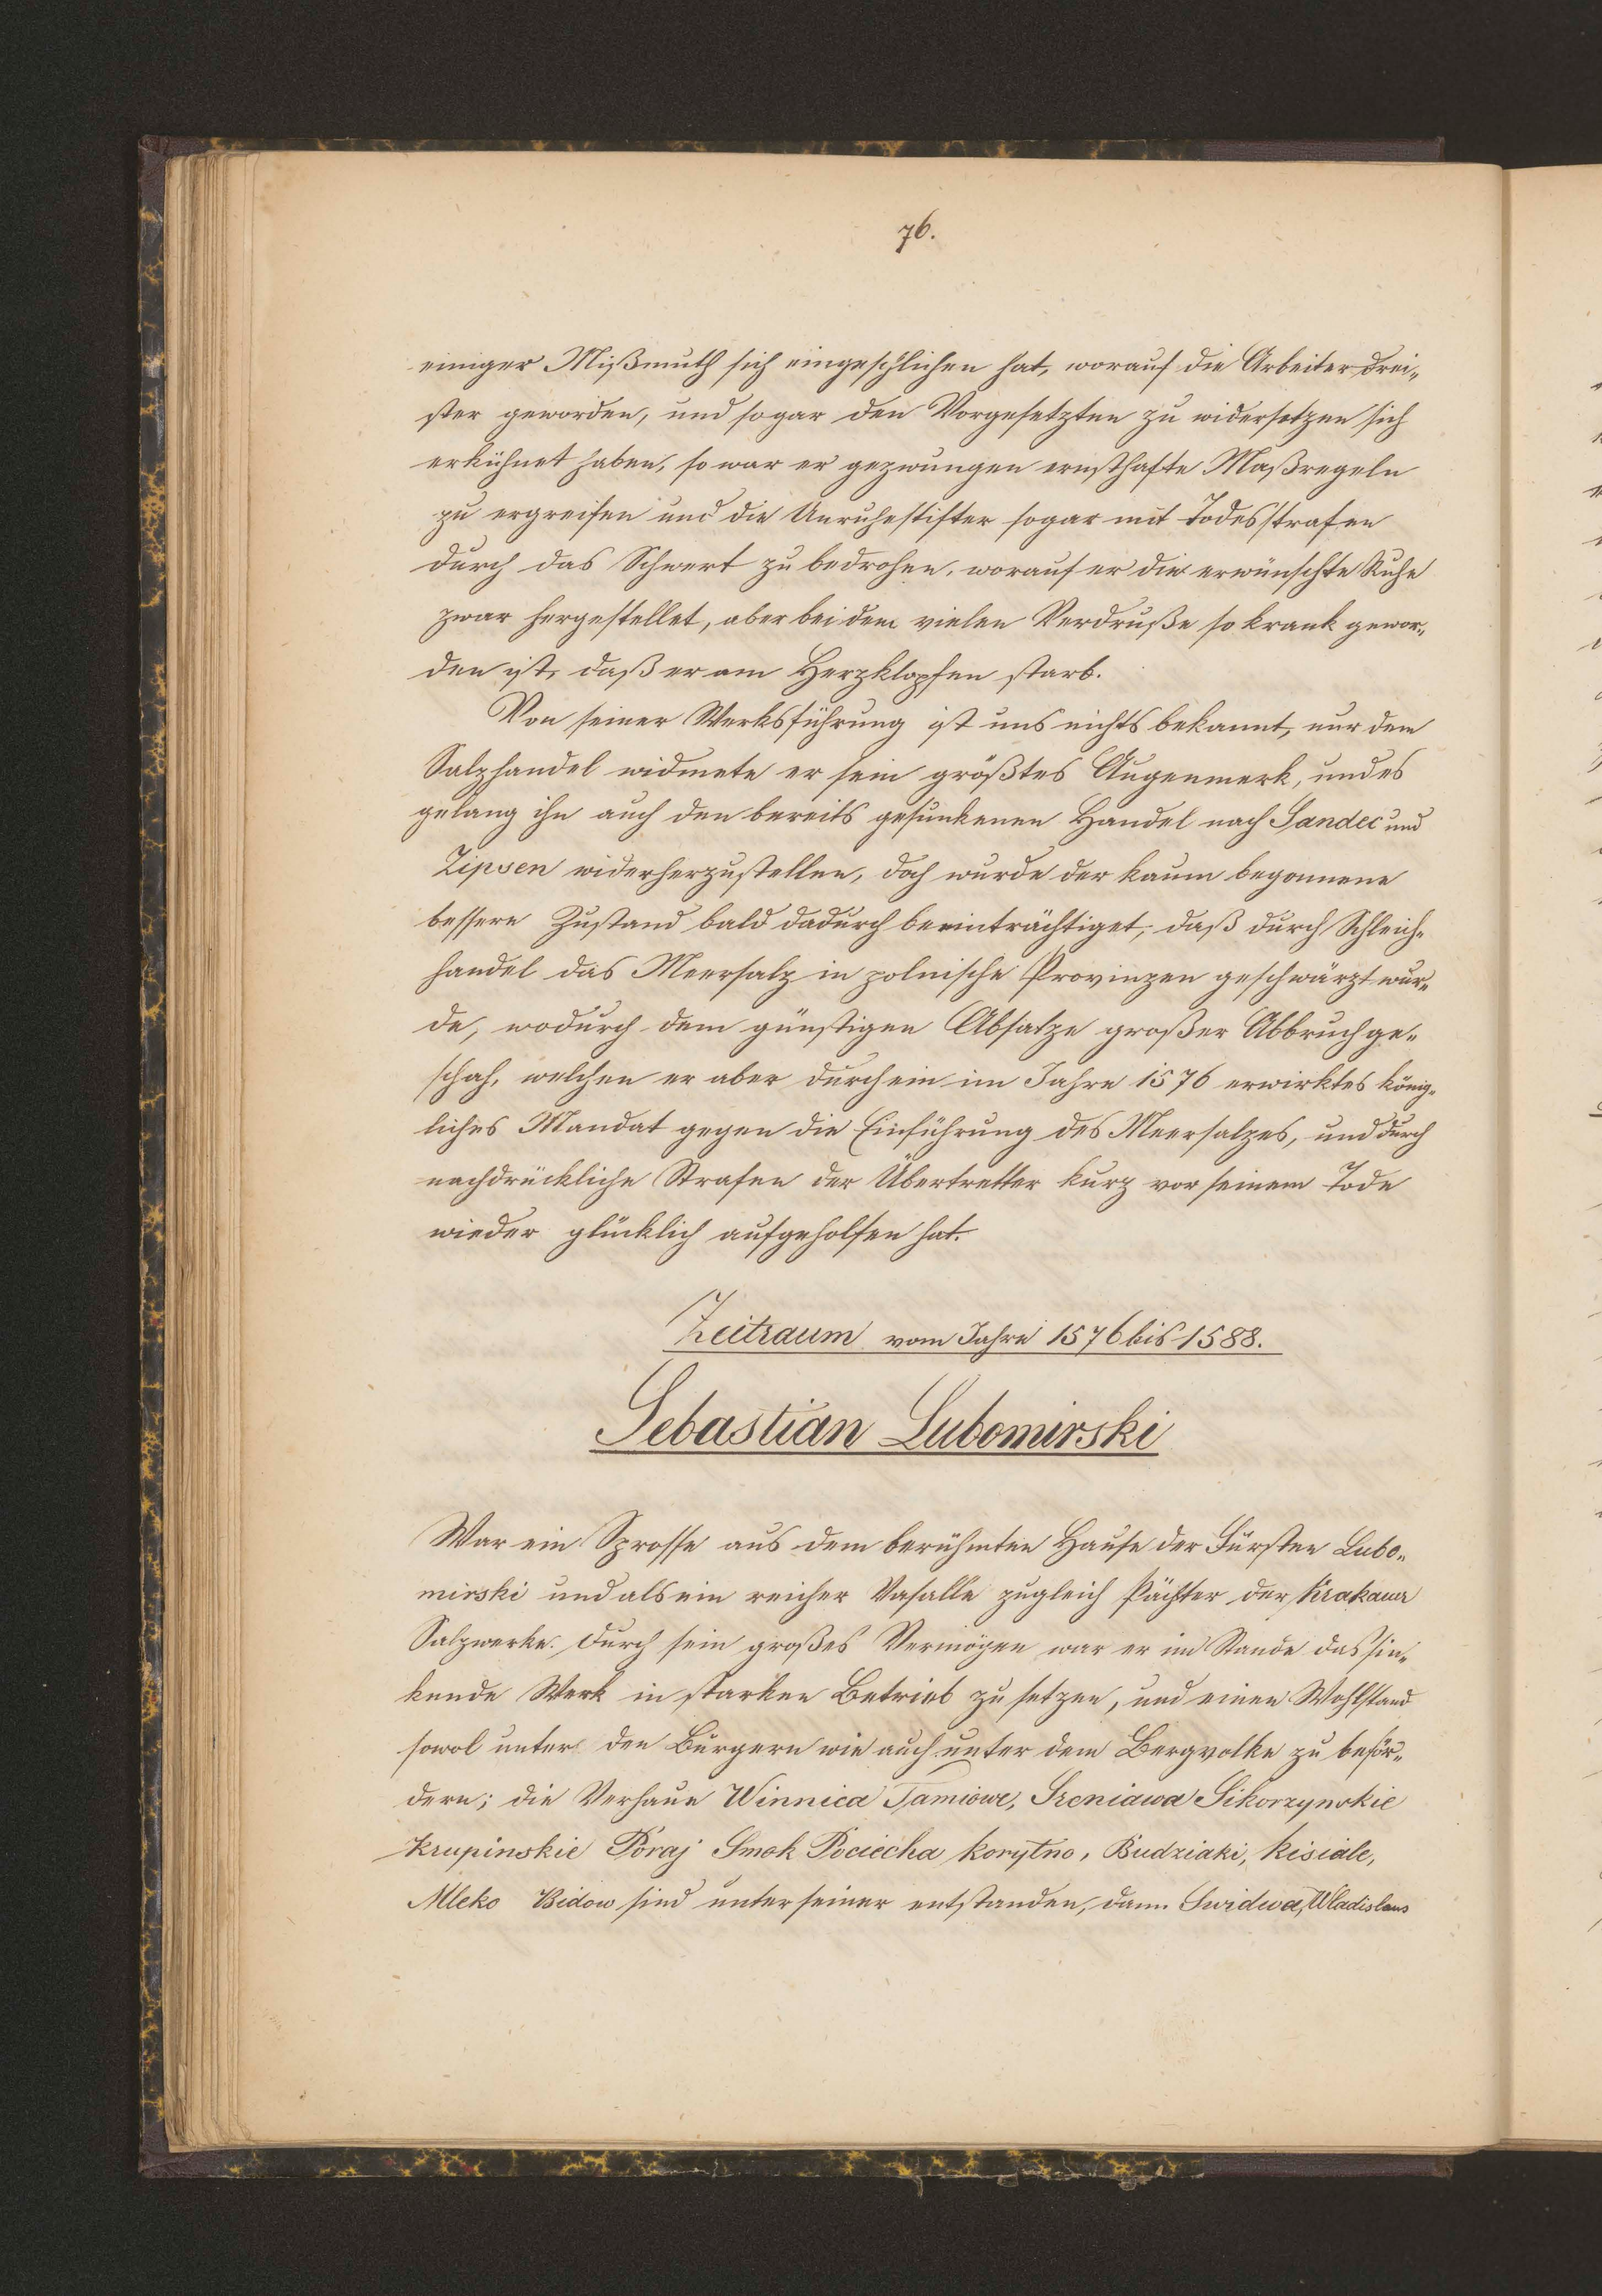 76.
einiger Mißmuth sich eingeschlichen hat, worauf die Arbeiter drei„
ster geworden, und sogar den Vorgesetzten zu widersetzen sich
erkühnet haben, so war er gezwungen ernsthafte Maßregeln
zu ergreifen und die Unruhestifter sogar mit Todesstrafen
durch das Schwert zu bedrohen, worauf er die erwünschte Ruhe
zwar hergestellet, aber bei dem vielen Verdruße so krank gewor„
den ist, daß er am Herzklopfen starb.
Von seiner Werksführung ist uns nichts bekannt, nur dem
Salzhandel widmete er sein größtes Augenmerk, und es
gelang ihn auch den bereits gesunkenen Handel nach Sandec und
Zipsen widerherzustellen, doch wurde der kaum begonnene
bessere Zustand bald dadurch beeinträchtiget, daß durch Schleich„
handel das Meersalz in polnische Provinzen geschwärzt wur„
de, wodurch dem günstigen Absatze großer Abbruch ge„
schah, welchen er aber durch ein im Jahre 1576 erwirktes könig„
liches Mandat gegen die Einführung des Meersalzes, und durch
nachdrückliche Strafen der Übertretter kurz vor seinem Tode
wieder glücklich aufgeholfen hat.
Zeitraum vom Jahre 1576 bis 1588.
Sebastian Lubomirski
War ein Sprosse aus dem berühmten Hause der Fürsten Lubo„
mirski und als ein reicher Vasalle zugleich Pächter der Krakauer
Salzwerke. Durch sein großes Vermögen war er im Stande das sin„
kende Werk in starken Betrieb zu setzen, und einen Wohlstand
sowol unter den Bürgern wie auch unter dem Bergvolke zu beför„
dern; die Verhaue Winnica Tamiowe, Sreniawa Sikorzynskie
Krupinskie Poraj Smok Pociecha Korytno, Budziaki, Kisiale,
Mleko Bidow sind unter seiner entstanden, dann Swidwa, Wladislaus